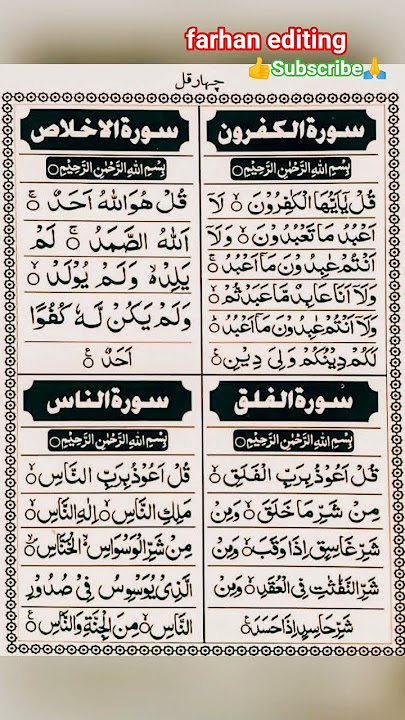 farhan editing
👍Subscribe🙏
چہار قل
سورة الكفرون
بِسْمِ اللهِ الرَّحْمٰنِ الرَّحِيْمِ ○
قُلْ يٰٓاَيُّهَا الْكٰفِرُوْنَ ○ لَآ
اَعْبُدُ مَا تَعْبُدُوْنَ ○ وَلَآ
اَنْتُمْ عٰبِدُوْنَ مَآ اَعْبُدُ ○
وَلَآ اَنَا عَابِدٌ مَّا عَبَدْتُّمْ ○
وَلَآ اَنْتُمْ عٰبِدُوْنَ مَآ اَعْبُدُ ○
لَكُمْ دِيْنُكُمْ وَلِيَ دِيْنِ ○
سورة الاخلاص
بِسْمِ اللهِ الرَّحْمٰنِ الرَّحِيْمِ ○
قُلْ هُوَ اللهُ اَحَدٌ ○
اَللهُ الصَّمَدُ ○ لَمْ
يَلِدْ ۙ وَلَمْ يُوْلَدْ ○
وَلَمْ يَكُنْ لَّهٗ كُفُوًا
اَحَدٌ ○
سورة الفلق
بِسْمِ اللهِ الرَّحْمٰنِ الرَّحِيْمِ ○
قُلْ اَعُوْذُ بِرَبِّ الْفَلَقِ ○
مِنْ شَرِّ مَا خَلَقَ ○ وَمِنْ
شَرِّ غَاسِقٍ اِذَا وَقَبَ ○ وَمِنْ
شَرِّ النَّفّٰثٰتِ فِي الْعُقَدِ ○ وَمِنْ
شَرِّ حَاسِدٍ اِذَا حَسَدَ ○
سورة الناس
بِسْمِ اللهِ الرَّحْمٰنِ الرَّحِيْمِ ○
قُلْ اَعُوْذُ بِرَبِّ النَّاسِ ○
مَلِكِ النَّاسِ ○ اِلٰهِ النَّاسِ ○
مِنْ شَرِّ الْوَسْوَاسِ الْخَنَّاسِ ○
الَّذِيْ يُوَسْوِسُ فِيْ صُدُوْرِ
النَّاسِ ○ مِنَ الْجِنَّةِ وَالنَّاسِ ○